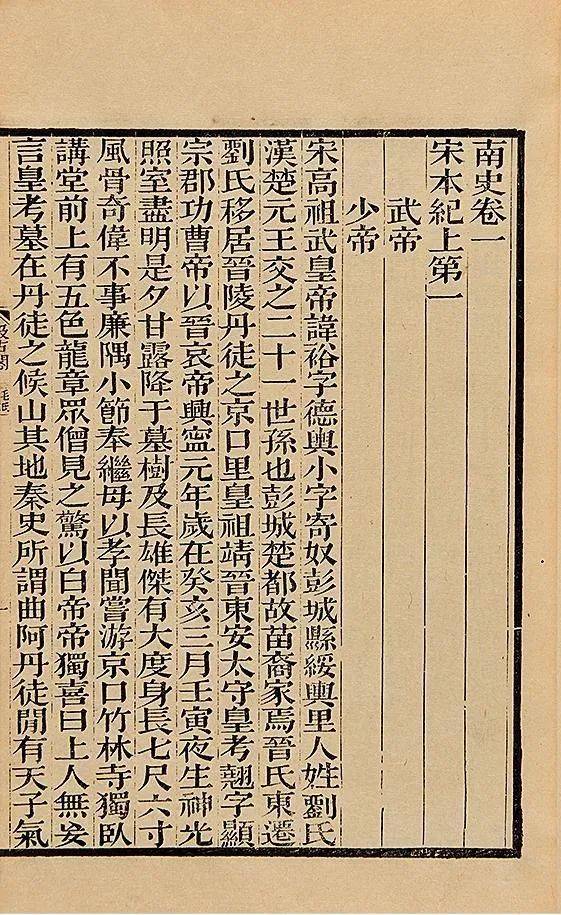 南史卷一
宋本紀上第一
武帝
少帝
宋高祖武皇帝諱裕字德輿小字寄奴彭城縣綏輿里人姓劉氏
漢楚元王交之二十一世孫也彭城楚都故苗裔家焉晉氏東遷
劉氏移居晉陵丹徒之京口里皇祖靖晉東安太守皇考翹字顯
宗郡功曹帝以晉哀帝興寧元年歲在癸亥三月壬寅夜生神光
照室盡明是夕甘露降于墓樹及長雄傑有大度身長七尺六寸
風骨奇偉不事廉隅小節奉繼母以孝聞嘗游京口竹林寺獨臥
講堂前上有五色龍章眾僧見之驚以白帝帝獨喜曰上人無妄
言皇考墓在丹徒之候山其地秦史所謂曲阿丹徒閒有天子氣